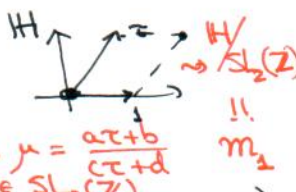 ℍ τ ⇝ ℍ/SL₂(ℤ)
1
!!
μ = aτ+b / cτ+d
m₁
∈ SL₂(ℤ)